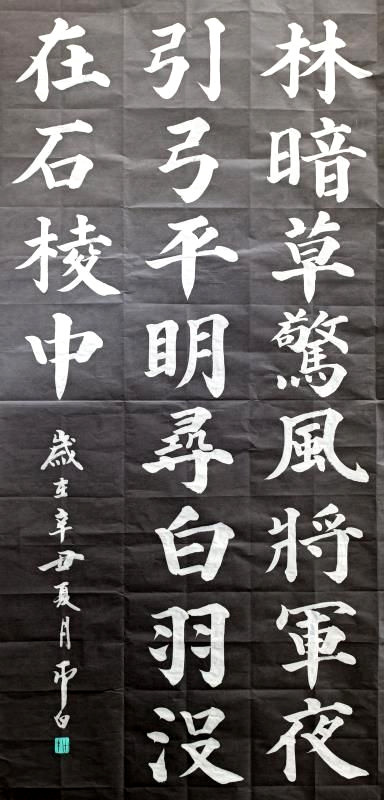 林暗草驚風將軍夜
引弓平明尋白羽没
在石棱中
歲在辛丑夏月